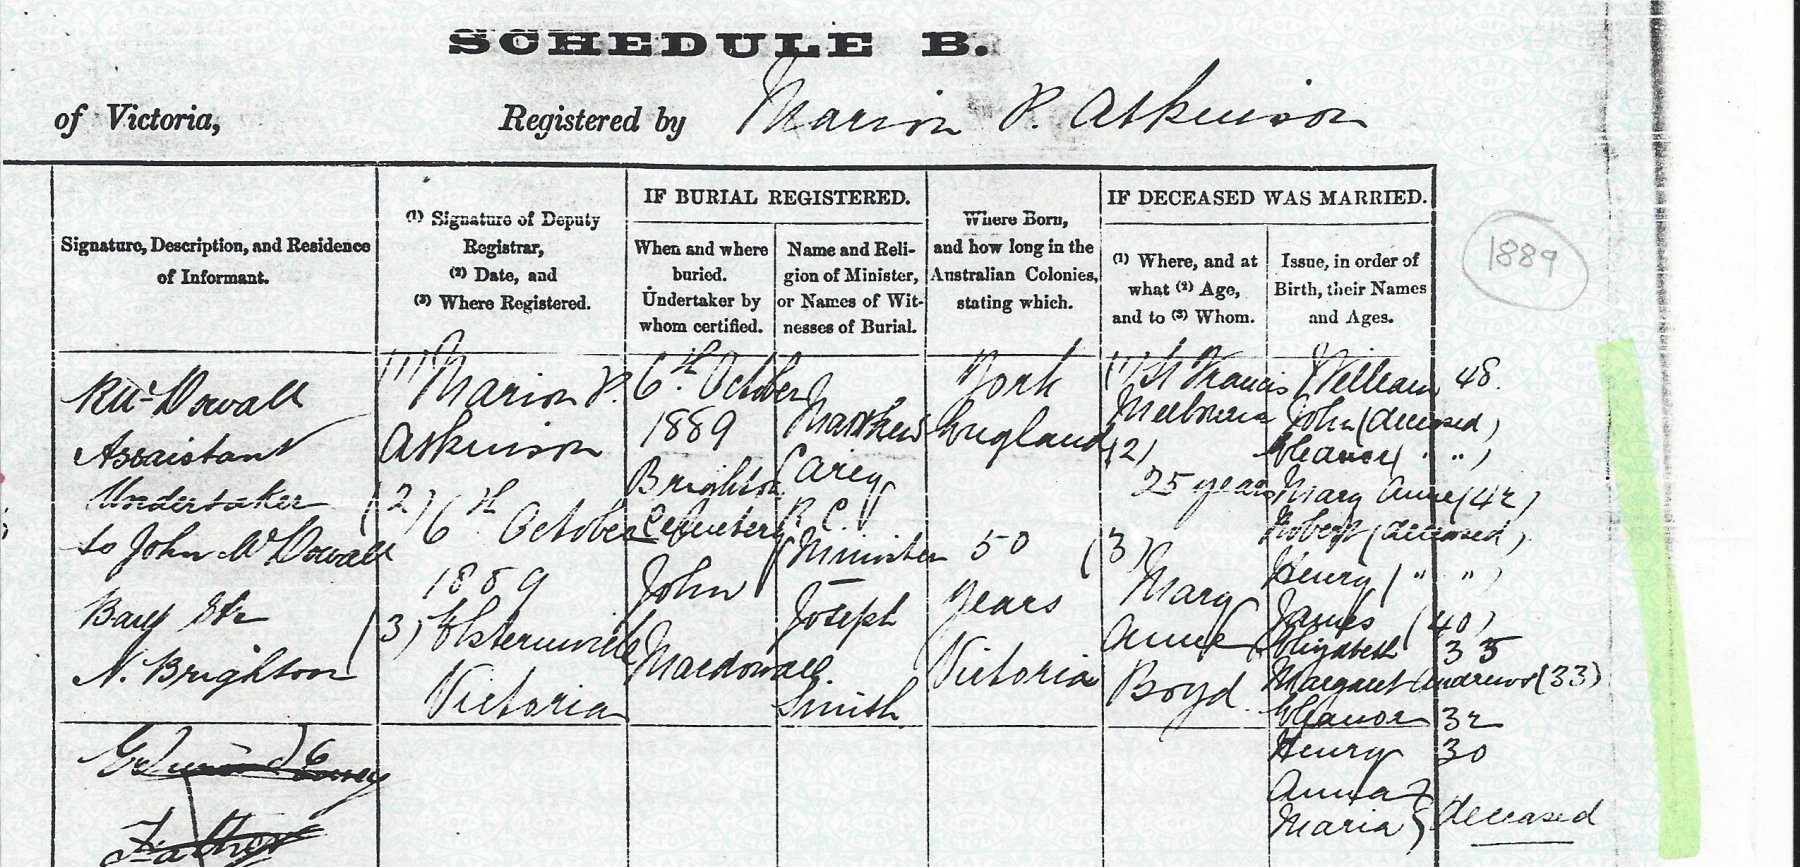 SCHEDULE B.
of Victoria, Registered by Marion P. Atkinson
IF BURIAL REGISTERED.
IF DECEASED WAS MARRIED.
Signature, Description, and Residence
of Informant.
(1) Signature of Deputy
Registrar,
(2) Date, and
(3) Where Registered.
When and where
buried.
Undertaker by
whom certified.
Name and Reli-
gion of Minister,
or Names of Wit-
nesses of Burial.
Where Born,
and how long in the
Australian Colonies,
stating which.
(1) Where, and at
what (2) Age,
and to (3) Whom.
Issue, in order of
Birth, their Names
and Ages.
1889
Dowall
Assistant
Undertaker
to John McDowall
Bay Str
N. Brighton
(1) Marion P.
Atkinson
(2) 6th October
1889
(3) Elsternwick
Victoria
6th October
1889
Brighton
Cemetery
John
Macdowall.
Matthew
Carey
R. C.
Minister
Joseph
Smith
York
England
50
years
Victoria
(1) St Francis
Melbourne
(2)
25 years
(3)
Mary
Anne
Boyd
William 48.
John (deceased)
Eleanor ( " " )
Mary Anne (42)
Robert (deceased)
Henry ( " " )
James (40)
Elizabeth 35
Margaret Andrews (33)
Eleanor 32
Henry 30
Anna
Maria } deceased
Father